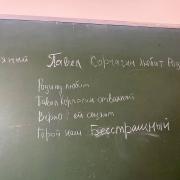 Павел Корчагин любит Род
Родину любит
Павел Корчагин отважный
Верно ей служит
Герой наш Бесстрашный